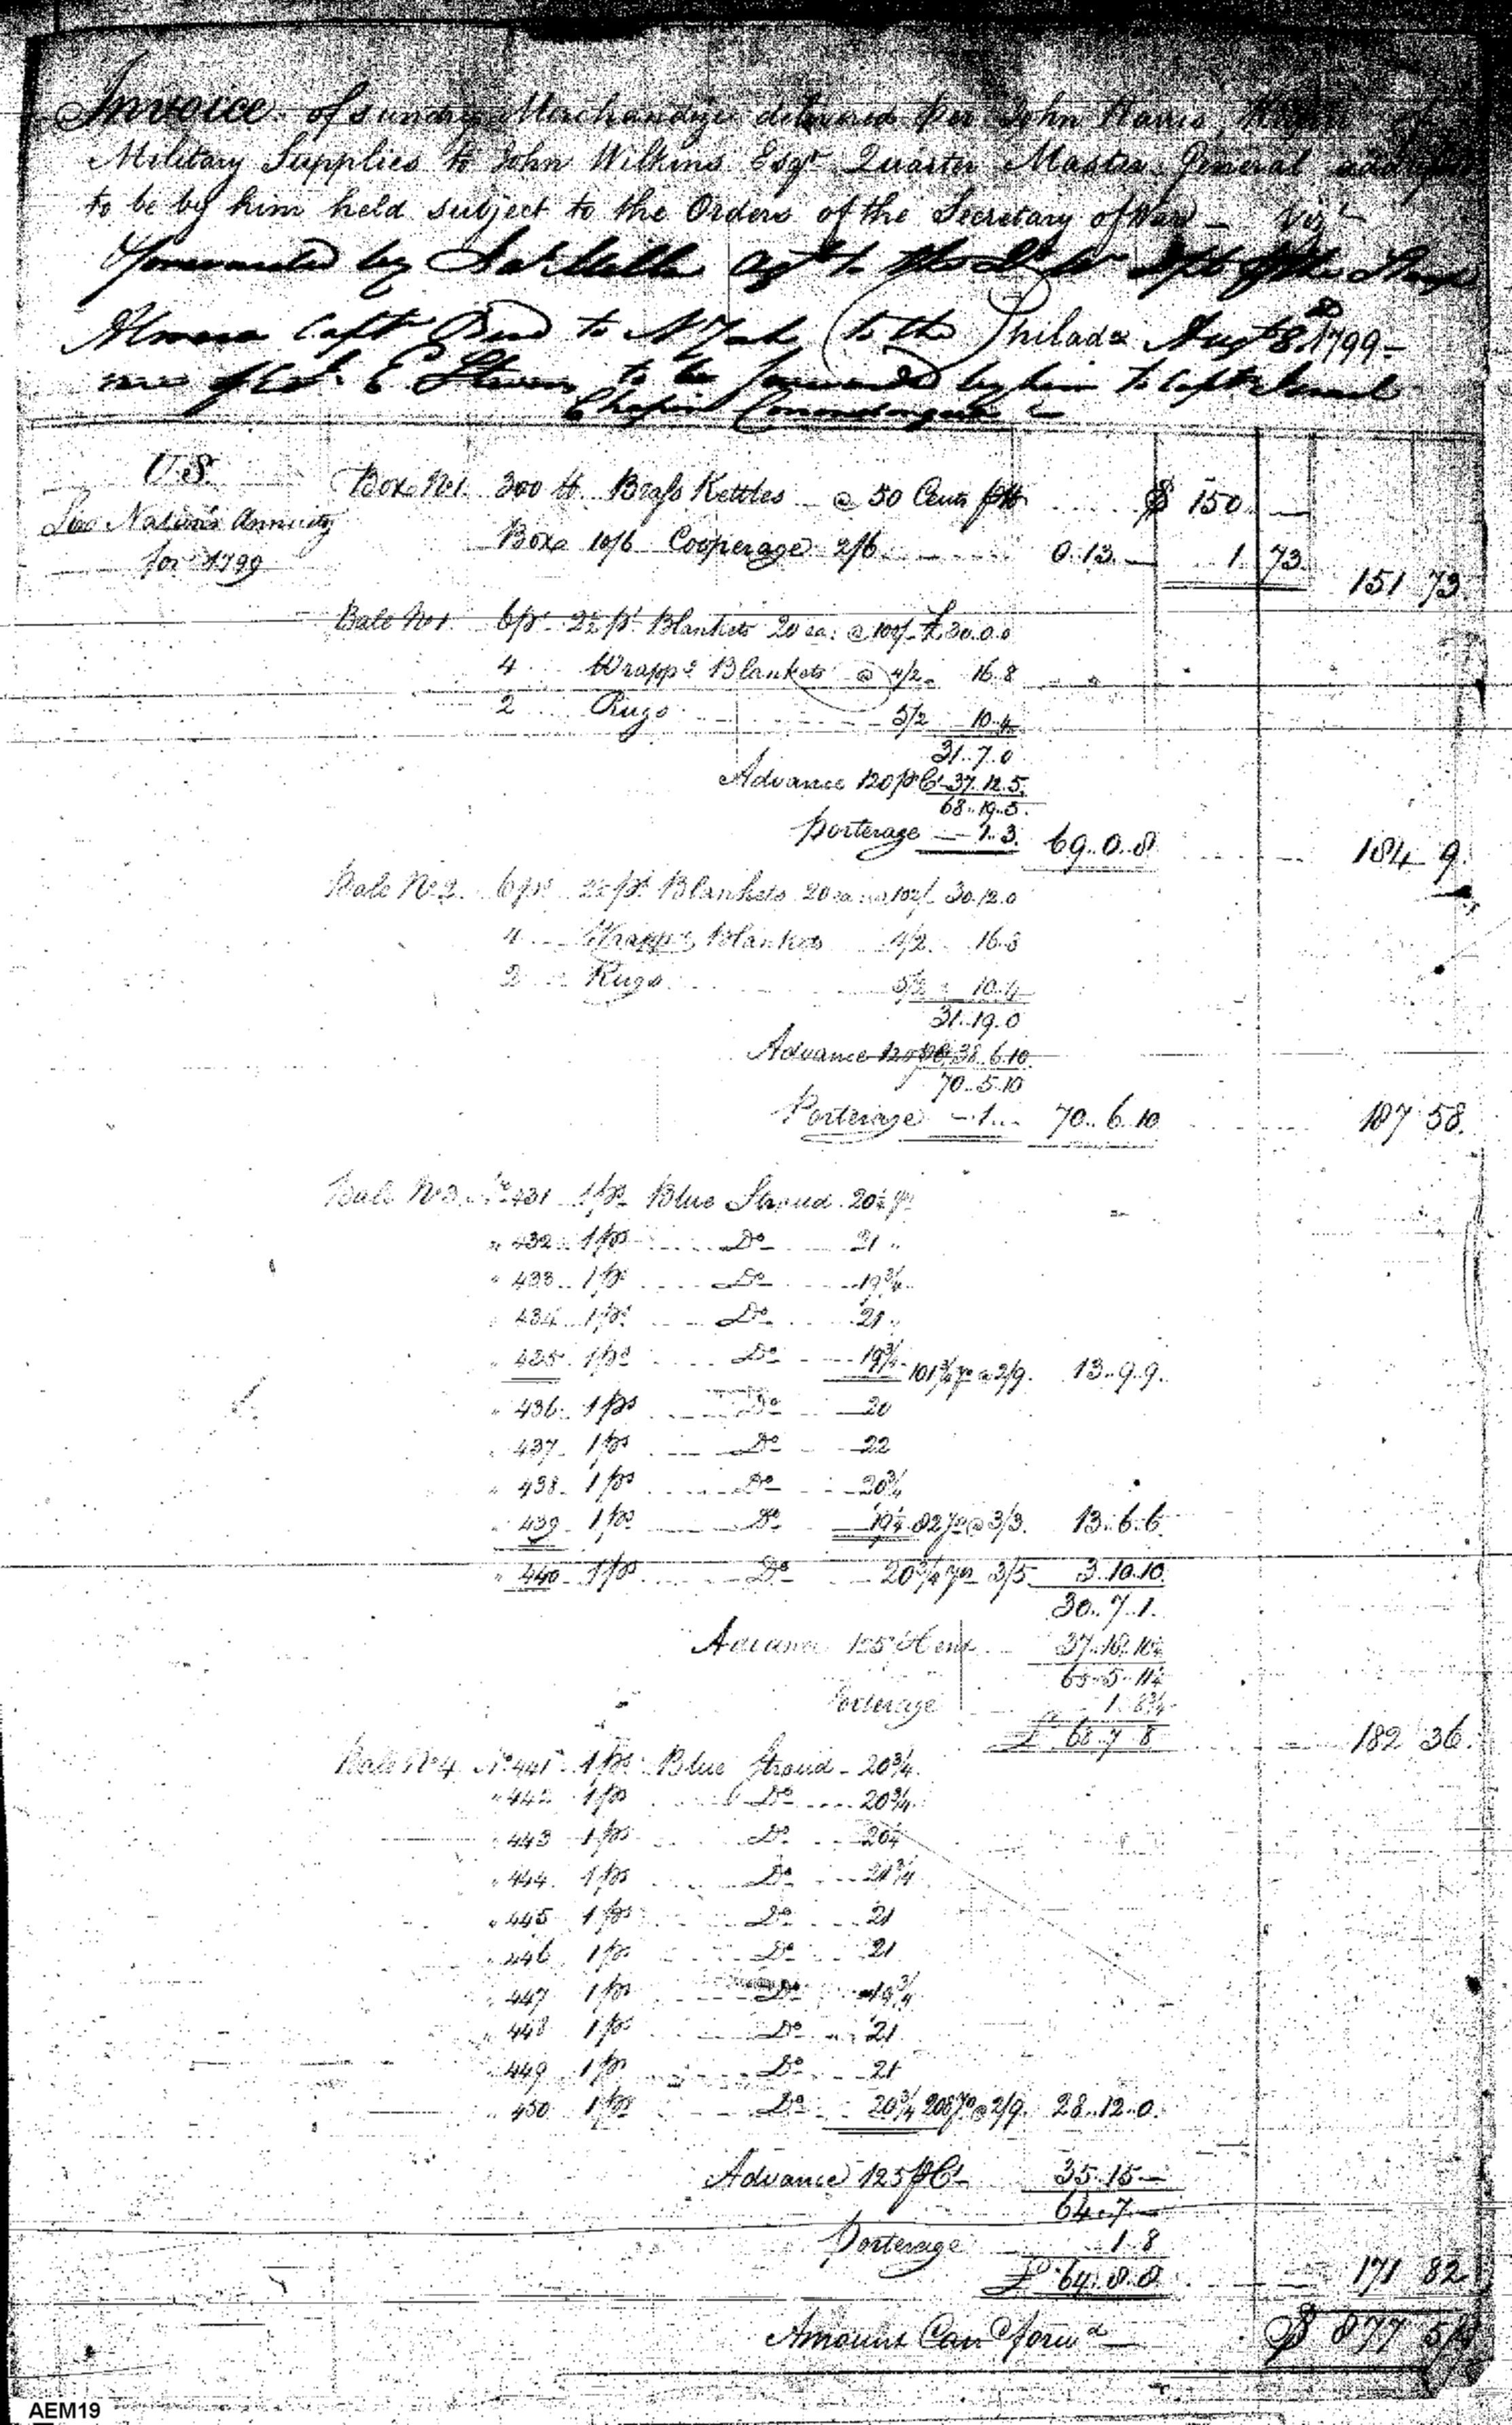 Invoice of sundry Merchandize delivered per John Harris, Keeper of
Military Supplies to John Wilkins Esqr. Quarter Master General
to be by him held subject to the Orders of the Secretary of War - Vizt
Forwarded by Agt to the Dr Wr Dpt Sloop
Almena Capt to N York to the Philada Augt 8. 1799-
care of E Stevens to be forwarded by him to Capt Israel
Chapin
U.S.
Box No 1. 300 lb. Brass Kettles @ 50 Cents plb $ 150. —
Six Nations Annuity
Box 10/6 Cooperage 2/6 0.13.— 1. 73.
for 1799
151 73.
Bale No 1. 6 ps. 2½ pt. Blankets 20 ea: @ 100/- £30.0.0
4 Wrappg Blankets @ 4/2- 16.8
2 Rugs 5/2 10.4
31..7.0
Advance 120 pr Ct 37.12.5.
68..19..5.
Porterage — 1.3. 69..0..8 184 9.
Bale No 2. 6 ps. 2½ pt. Blankets 20 ea: @ 102/- 30.12.0
4 Wrappg Blankets 4/2 16.8
2 Rugs 5/2 10.4
31..19.0
Advance 120 p Ct 38.6.10
70..5.10
Porterage —.1... 70..6.10 187 58.
Bale No 3. No 431 1 ps Blue Stroud 20¼ yds
" 432 1 ps Do 21 "
" 433 1 ps Do 19¾
" 434 1 ps Do 21
" 435 1 ps Do 19¾ 101¾ yds @ 2/9. 13..9.9.
" 436 1 ps Do 20
" 437 1 ps Do 22
" 438 1 ps Do 20¾
" 439 1 ps Do 19¼ 82 yds @ 3/3. 13..6.6.
" 440 1 ps Do 20¾ yds 3/5 3.10.10
30..7.1.
Advance 125 P Cent 37.18.10¼
68..5..11¼
Porterage 1..8¾
£ 68..7..8 182 36.
Bale No 4. No 441 1 ps Blue Stroud - 20¾
" 442 1 ps Do 20¾
" 443 1 ps Do 20¼
" 444 1 ps Do 21¾
" 445 1 ps Do 21
" 446 1 ps Do 21
" 447 1 ps Do 19¾
" 448 1 ps Do 21
" 449 1 ps Do 21
" 450 1 ps Do 20¾ 208 yds @ 2/9. 28..12..0.
Advance 125 p Ct 35.15—
64..7—
Porterage 1..8
£ 64.8.8 171 82
Amount Carr Forwd $ 877 58
AEM19